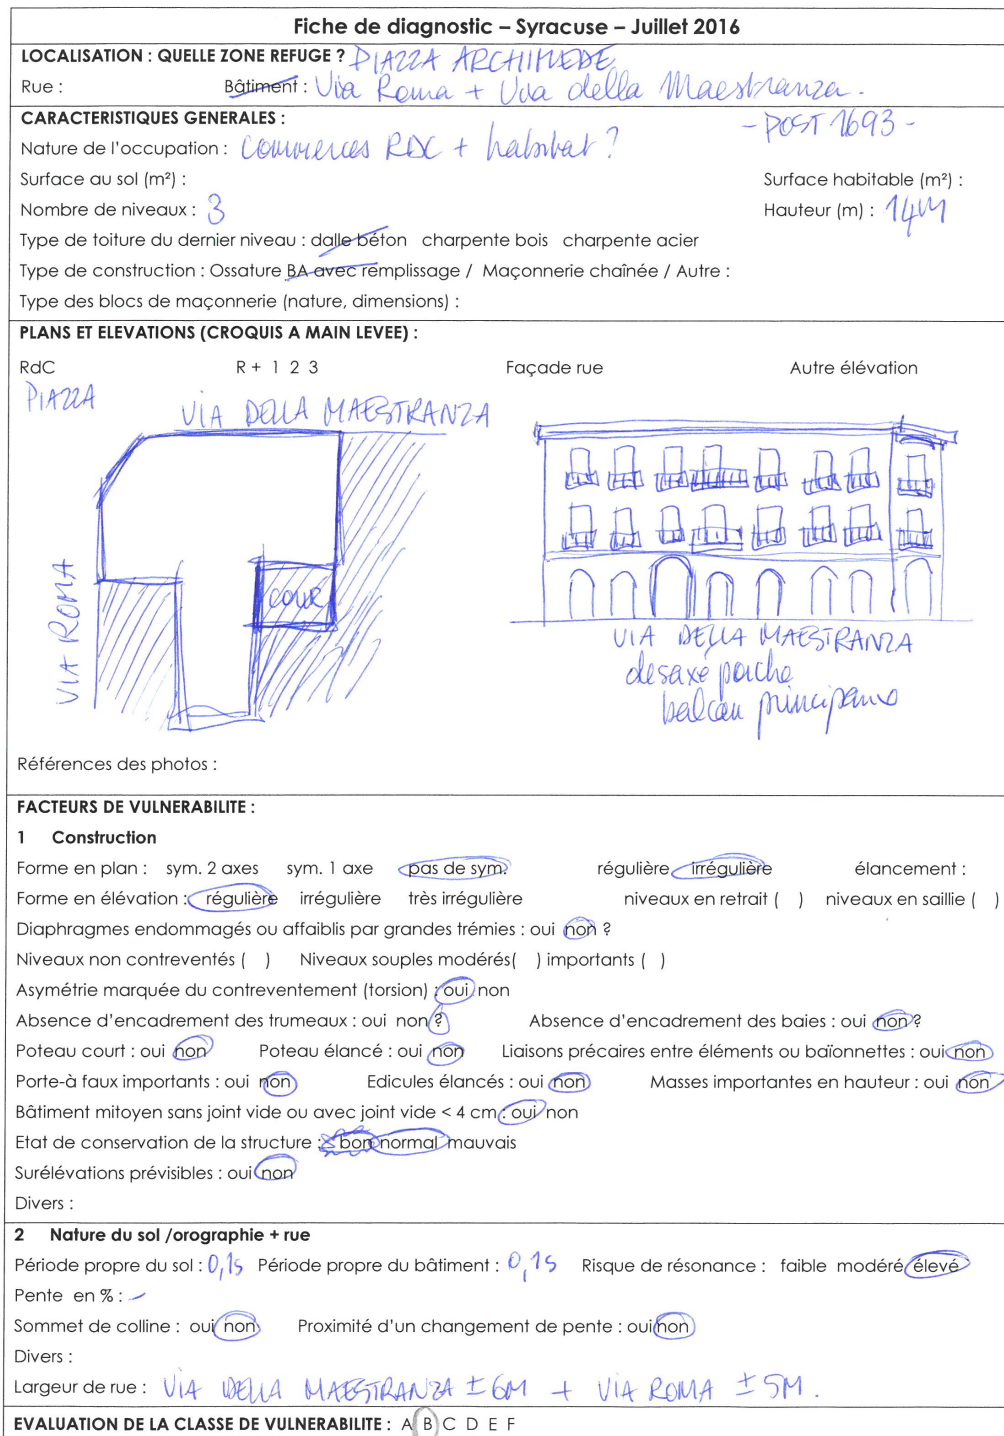 Fiche de diagnostic – Syracuse – Juillet 2016
LOCALISATION : QUELLE ZONE REFUGE ? PIAZZA ARCHIMEDE
Rue : Bâtiment : Via Roma + Via della Maestranza.
CARACTERISTIQUES GENERALES : - POST 1693 -
Nature de l'occupation : Commerces RDC + habitat ?
Surface au sol (m²) : Surface habitable (m²) :
Nombre de niveaux : 3 Hauteur (m) : 14M
Type de toiture du dernier niveau : dalle béton charpente bois charpente acier
Type de construction : Ossature BA avec remplissage / Maçonnerie chaînée / Autre :
Type des blocs de maçonnerie (nature, dimensions) :
PLANS ET ELEVATIONS (CROQUIS A MAIN LEVEE) :
RdC R + 1 2 3 Façade rue Autre élévation
PIAZZA
VIA DELLA MAESTRANZA
VIA ROMA
COUR
VIA DELLA MAESTRANZA
desaxé porche
balcon principaux
Références des photos :
FACTEURS DE VULNERABILITE :
1 Construction
Forme en plan : sym. 2 axes sym. 1 axe pas de sym. régulière irrégulière élancement :
Forme en élévation : régulière irrégulière très irrégulière niveaux en retrait ( ) niveaux en saillie ( )
Diaphragmes endommagés ou affaiblis par grandes trémies : oui non ?
Niveaux non contreventés ( ) Niveaux souples modérés( ) importants ( )
Asymétrie marquée du contreventement (torsion) : oui non
Absence d'encadrement des trumeaux : oui non ? Absence d'encadrement des baies : oui non ?
Poteau court : oui non Poteau élancé : oui non Liaisons précaires entre éléments ou baïonnettes : oui non
Porte-à faux importants : oui non Edicules élancés : oui non Masses importantes en hauteur : oui non
Bâtiment mitoyen sans joint vide ou avec joint vide < 4 cm : oui non
Etat de conservation de la structure : bon normal mauvais
Surélévations prévisibles : oui non
Divers :
2 Nature du sol /orographie + rue
Période propre du sol : 0,1s Période propre du bâtiment : 0,1s Risque de résonance : faible modéré élevé
Pente en % : -
Sommet de colline : oui non Proximité d'un changement de pente : oui non
Divers :
Largeur de rue : VIA DELLA MAESTRANZA ± 6M + VIA ROMA ± 5M.
EVALUATION DE LA CLASSE DE VULNERABILITE : A B C D E F